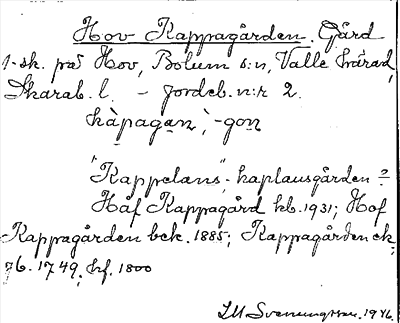 Hov Kappagården. Gård
1-sk. på Hov, Bolum s:n, Valle härad,
Skarab. l. - Jordeb. n:r 2.
kàpagaṇ, -goṇ
"Kappelans", kaplansgården?
Håf Kappagård kb. 1931; Hof
Kappagården bek. 1885; Kappagården ek.
76. 1749, hf. 1800
SM Svenungsson. 1946.